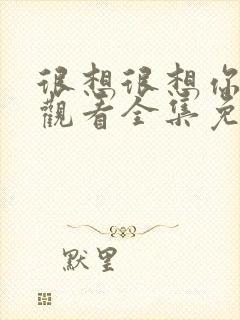 很想很想你
觀看全集免
默里